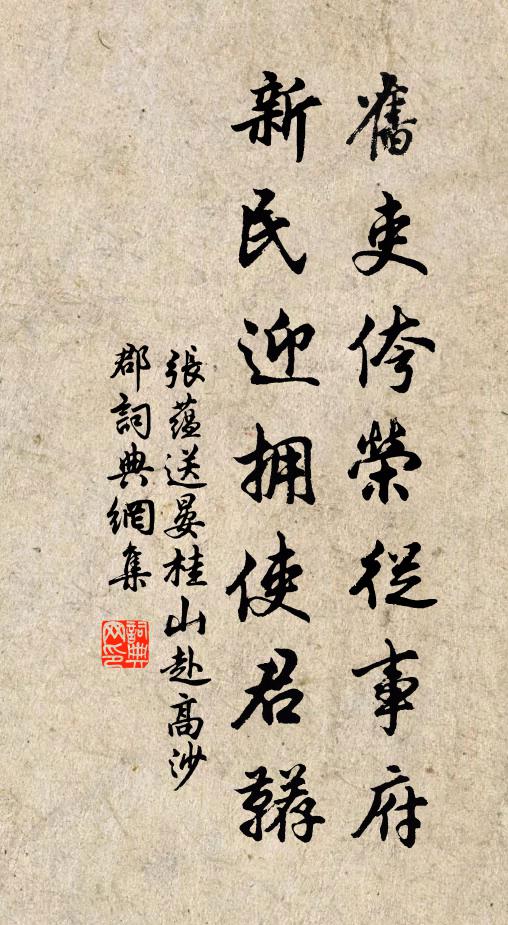 舊吏侉榮從事府
新民迎拥使君鞯
張蘊送晏桂山赴高沙
郡詞典網集
詞典
网印